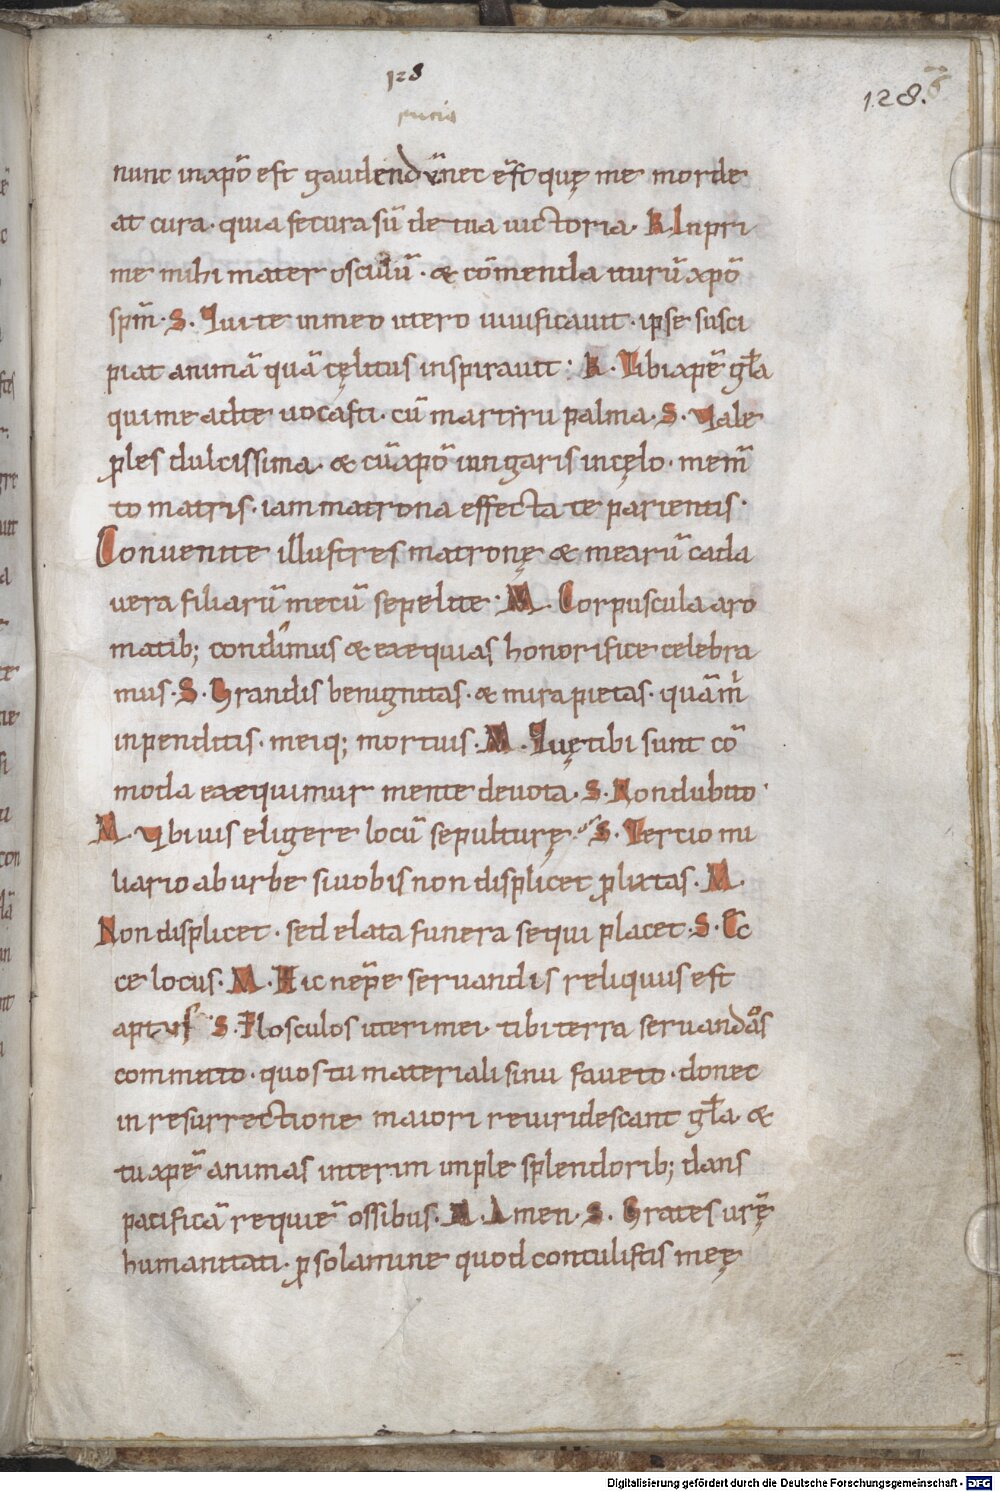 128
128.
nunc inxpō est gaudendū nec ē̄st quę me morde
at cura · quia secura sū de tua uictoria · K. Inpri
me mihi mater osculū · & cōmenda iturū xpō
spm̄ · S. Qui te in meo utero uiuificauit · ipse susci
piat animā quā cęlitus inspirauit : K. Tibi xpē gła
qui me ad te uocasti · cū martiru palma · S. Vale
ples dulcissima · & cū xpō iungaris in cęlo · mem̄
to matris · iam matrona effecta te parientis ·
Conuenite illustres matronę & mearū cada
uera filiarū mecū sepelite · M. Corpuscula aro
matib; condimus & exequias honorifice celebra
mus · S. Grandis benignitas · & mira pietas · quā m̄
inpenditis · meiq; mortuis · M. Quę tibi sunt cō
moda exequimur mente deuota · S. Non dubito
M. Vbi uis eligere locū sepulturę · S. Tercio mi
liario ab urbe si uobis non displicet plixitas · M.
Non displicet · sed elata funera sequi placet · S. Ec
ce locus · M. Hic nēpe seruandis reliquiis est
aptus S. Flosculos uteri mei · tibi terra seruandos
committo · quos tu materiali sinu faueto · donec
in resurrectione maiori reuiridescant gła &
tu xpē animas interim imple splendorib; dans
pacificā requiē ossibus · M. Amen · S. Grates urę
humanitati · p solamine quod contulistis meę
Digitalisierung gefördert durch die Deutsche Forschungsgemeinschaft - DFG